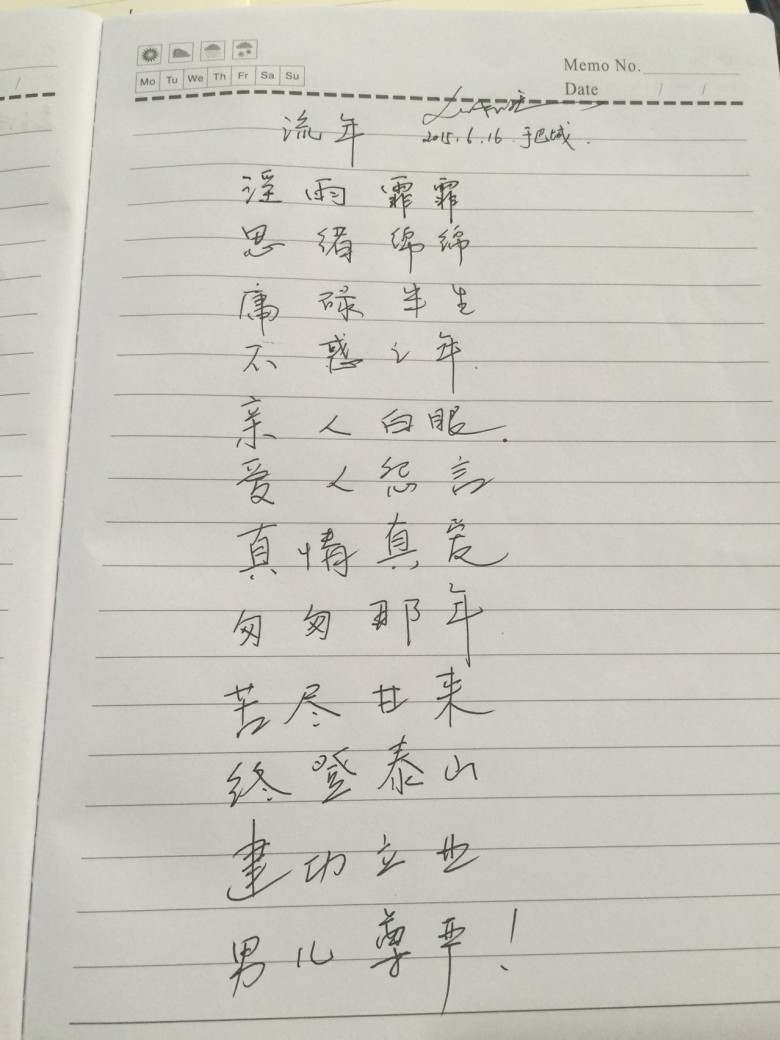 Mo Tu We Th Fr Sa Su
Memo No.
Date / /
流年
2015.6.16 于巴城.
淫雨霏霏
思绪绵绵
庸碌半生
不惑之年.
亲人白眼.
爱人怨言
真情真爱
匆匆那年
苦尽甘来
终登泰山
建功立业
男儿尊严!